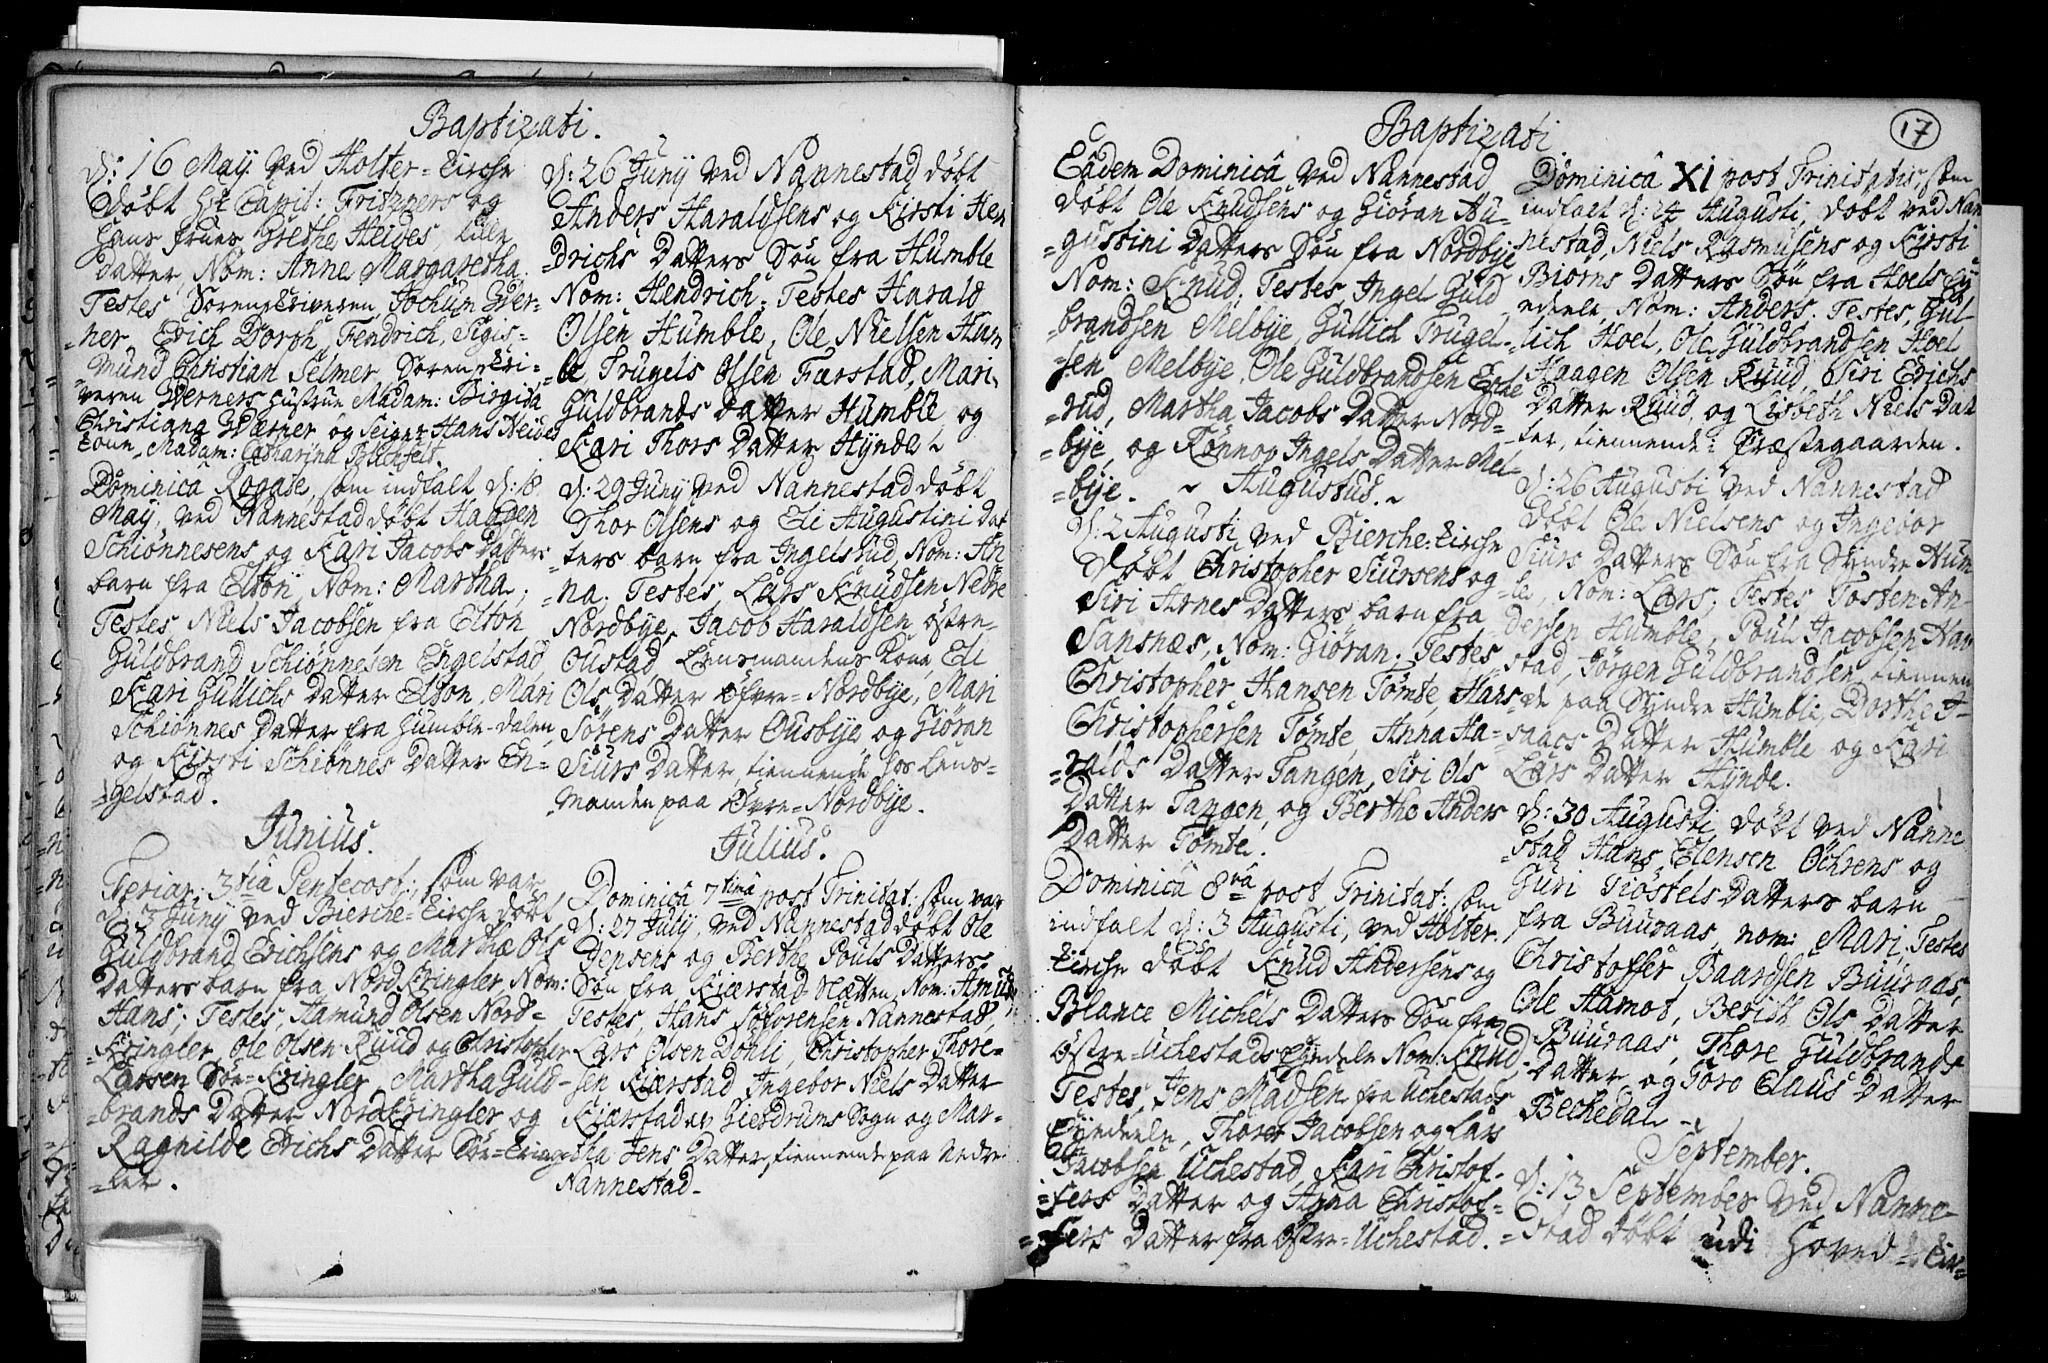 Baptizati.
d: 16 May ved Holter-Kirche
döbt Hr: Capit: Fritzners og
hans frues Grethe Heides, lille
datter, Nom: Anne Margaretha.
Testes Sorenskriveren Jochum Wer-
=ner, Erich Dorph, Fendrich, Sigis-
=mund Christian Selmer, Sorenskri-
veren Werners hustrue Madam: Birgitta
Christiana Werner og Seigr Hans Heides
kone, Madam: Catharina Bachfelt.
Dominicâ Rogate, som indfalt d: 18
Maÿ, ved Nannestad döbt Haagen
Schiönnesens og Kari Jacobs datters
barn fra Eltön, Nom: Martha.
Testes Niels Jacobsen fra Elton
Guldbrand Schiönnesen Engelstad,
Kari Gullichs datter Elton, Mari
Schiönnes datter fra Humble-dalen,
og Kirsti Schiönnes datter En-
=gelstad.
Junius.
Feriar: 3tia Pentecost:, som var
d: 3 Junÿ ved Bierche-Kirche döbt
Guldbrand Erichsens og Marthæ Ols
datters barn fra Nord Kringler, Nom:
Hans; Testes, Hamund Olsen Nord-
=Kringler, Ole Olsen Ruud og Christopher
Larsen Sör-Kringler, Martha Guld-
=brands datter Nordkringler og
Ragnilde Erichs datter Sör-Kring-
=ler.
d: 26 Junÿ ved Nannestad döbt
Anders Haraldsens og Kirsti Hen
=drichs datters Sön fra Humble
Nom: Hendrich. Testes Harald
Olsen Humble, Ole Nielsen Hum
=ble Trugels Olsen Færstad, Mari
Guldbrands datter Humble, og
Kari Thors datter Hÿnde.
d: 29 Junÿ ved Nannestad döbt
Thor Olsens og Eli Augustini dat
=ters barn fra Ingelsrud, Nom: An
=na. Testes Lars Knudsen Nedre
Nordbÿe, Jacob Haraldsen östre-
Oustad, Lensmandens kone, Eli
Ols datter öfvre-Nordbÿe, Mari
Sörens datter Ousbÿe, og Giöran
Siurs datter, tiennende hos Lens-
manden paa Øvre-Nordbÿe.
Julius.
Dominicâ 7timâ post Trinitat: som var
d: 27 Julÿ, ved Nannestad döbt Ole
Jensens og Berthe Pouls datters
Sön fra Kiærstad-Netten, Nom: Amund
Testes, Hans Söforensen Nannestad,
Lars Olsen Dohli, Christopher Thore-
sen Kiærstad, Ingebor Niels datter
Kiærstad av Gierdrums Sogn og Mar-
=tha Jens datter, tiennende paa nedre
Nannestad-
Baptizati
17
Eâdem Dominicâ ved Nannestad
döbt Ole Knudsens og Giöran Au-
=gustini datters Sön fra Nordbÿe
Nom: Knud, Testes Ingel Guld
brandsen Melbÿe, Gullich Trugel-
=sen Melbÿe, Ole Guldbrandsen Egde
=rud, Martha Jacobs datter Nord-
=bÿe, og Rönnov Ingels datter Mel-
=bÿe.
~ Augustus. ~
d: 2 Augusti, ved Bierche-Kirche
döbt Christopher Siursens og
Siri Arnes datters barn fra
Sansnæs, Nom: Giöran. Testes
Christopher Hansen Tömte, Hans
Christophersen Tömte, Anna Ha-
=ralds datter Tangen, Siri Ols
datter Tangen, og Berthe Anders
datter Tömte.
Dominicâ 8vâ post Trinitat: som
indfalt d: 3 Augusti, ved Holter
Kirche döbt Knud Andersens og
Blance Michels datters Sön fra
östre-Uchestads Eÿedeele Nom: Knud
Testes, Jens Madsen fra Uchestads
Eÿedeele, Thore Jacobsen og Lars
Jacobsen Uchestad, Kari Christof-
=fers datter og Anna Christof-
=fers datter fra östre-Uchestad.
Dominicâ XI post Trinitatis, som
indfalt d: 24 Augusti, döbt ved Nan
nestad, Niels Rasmusens og Kirsti
Biörns datters Sön fra Hoels Eÿ
edeele, Nom: Anders. Testes, Gul-
=lich Hoel, Ole Guldbrandsen Hoel
Haagen Olsen Ruud, Siri Erichs
datter Ruud, og Lisbeth Niels dat
ter, tiennende i Præstegaarden.
d: 26 Augusti ved Nannestad
döbt Ole Nielsens og Ingebor
Siurs datters Sön fra Syndre Hum
=ble, Nom: Lars; Testes, Tosten An-
dersen Humble, Poul Jacobsen Hau
stad, Jörgen Guldbrandsen tiennen
=de paa Syndre Humble, Dorthe I-
=saacs datter Humble og Kari
Lars datter Hÿnde.
d: 30 Augusti, döbt ved Nanne
stad Hans Elensen Öchrens og
Guri Tiöstels datters barn
fra Buuraas, nom: Mari, Testes
Christoffer Baardsen Buuraas,
Ole Hamot, Berith Ols datter
Buuraas, Thore Guldbrands
datter og Toro Claus datter
Bechedal -
September.
d: 13 September ved Nanne-
=stad döbt udi Hoved-Kir=